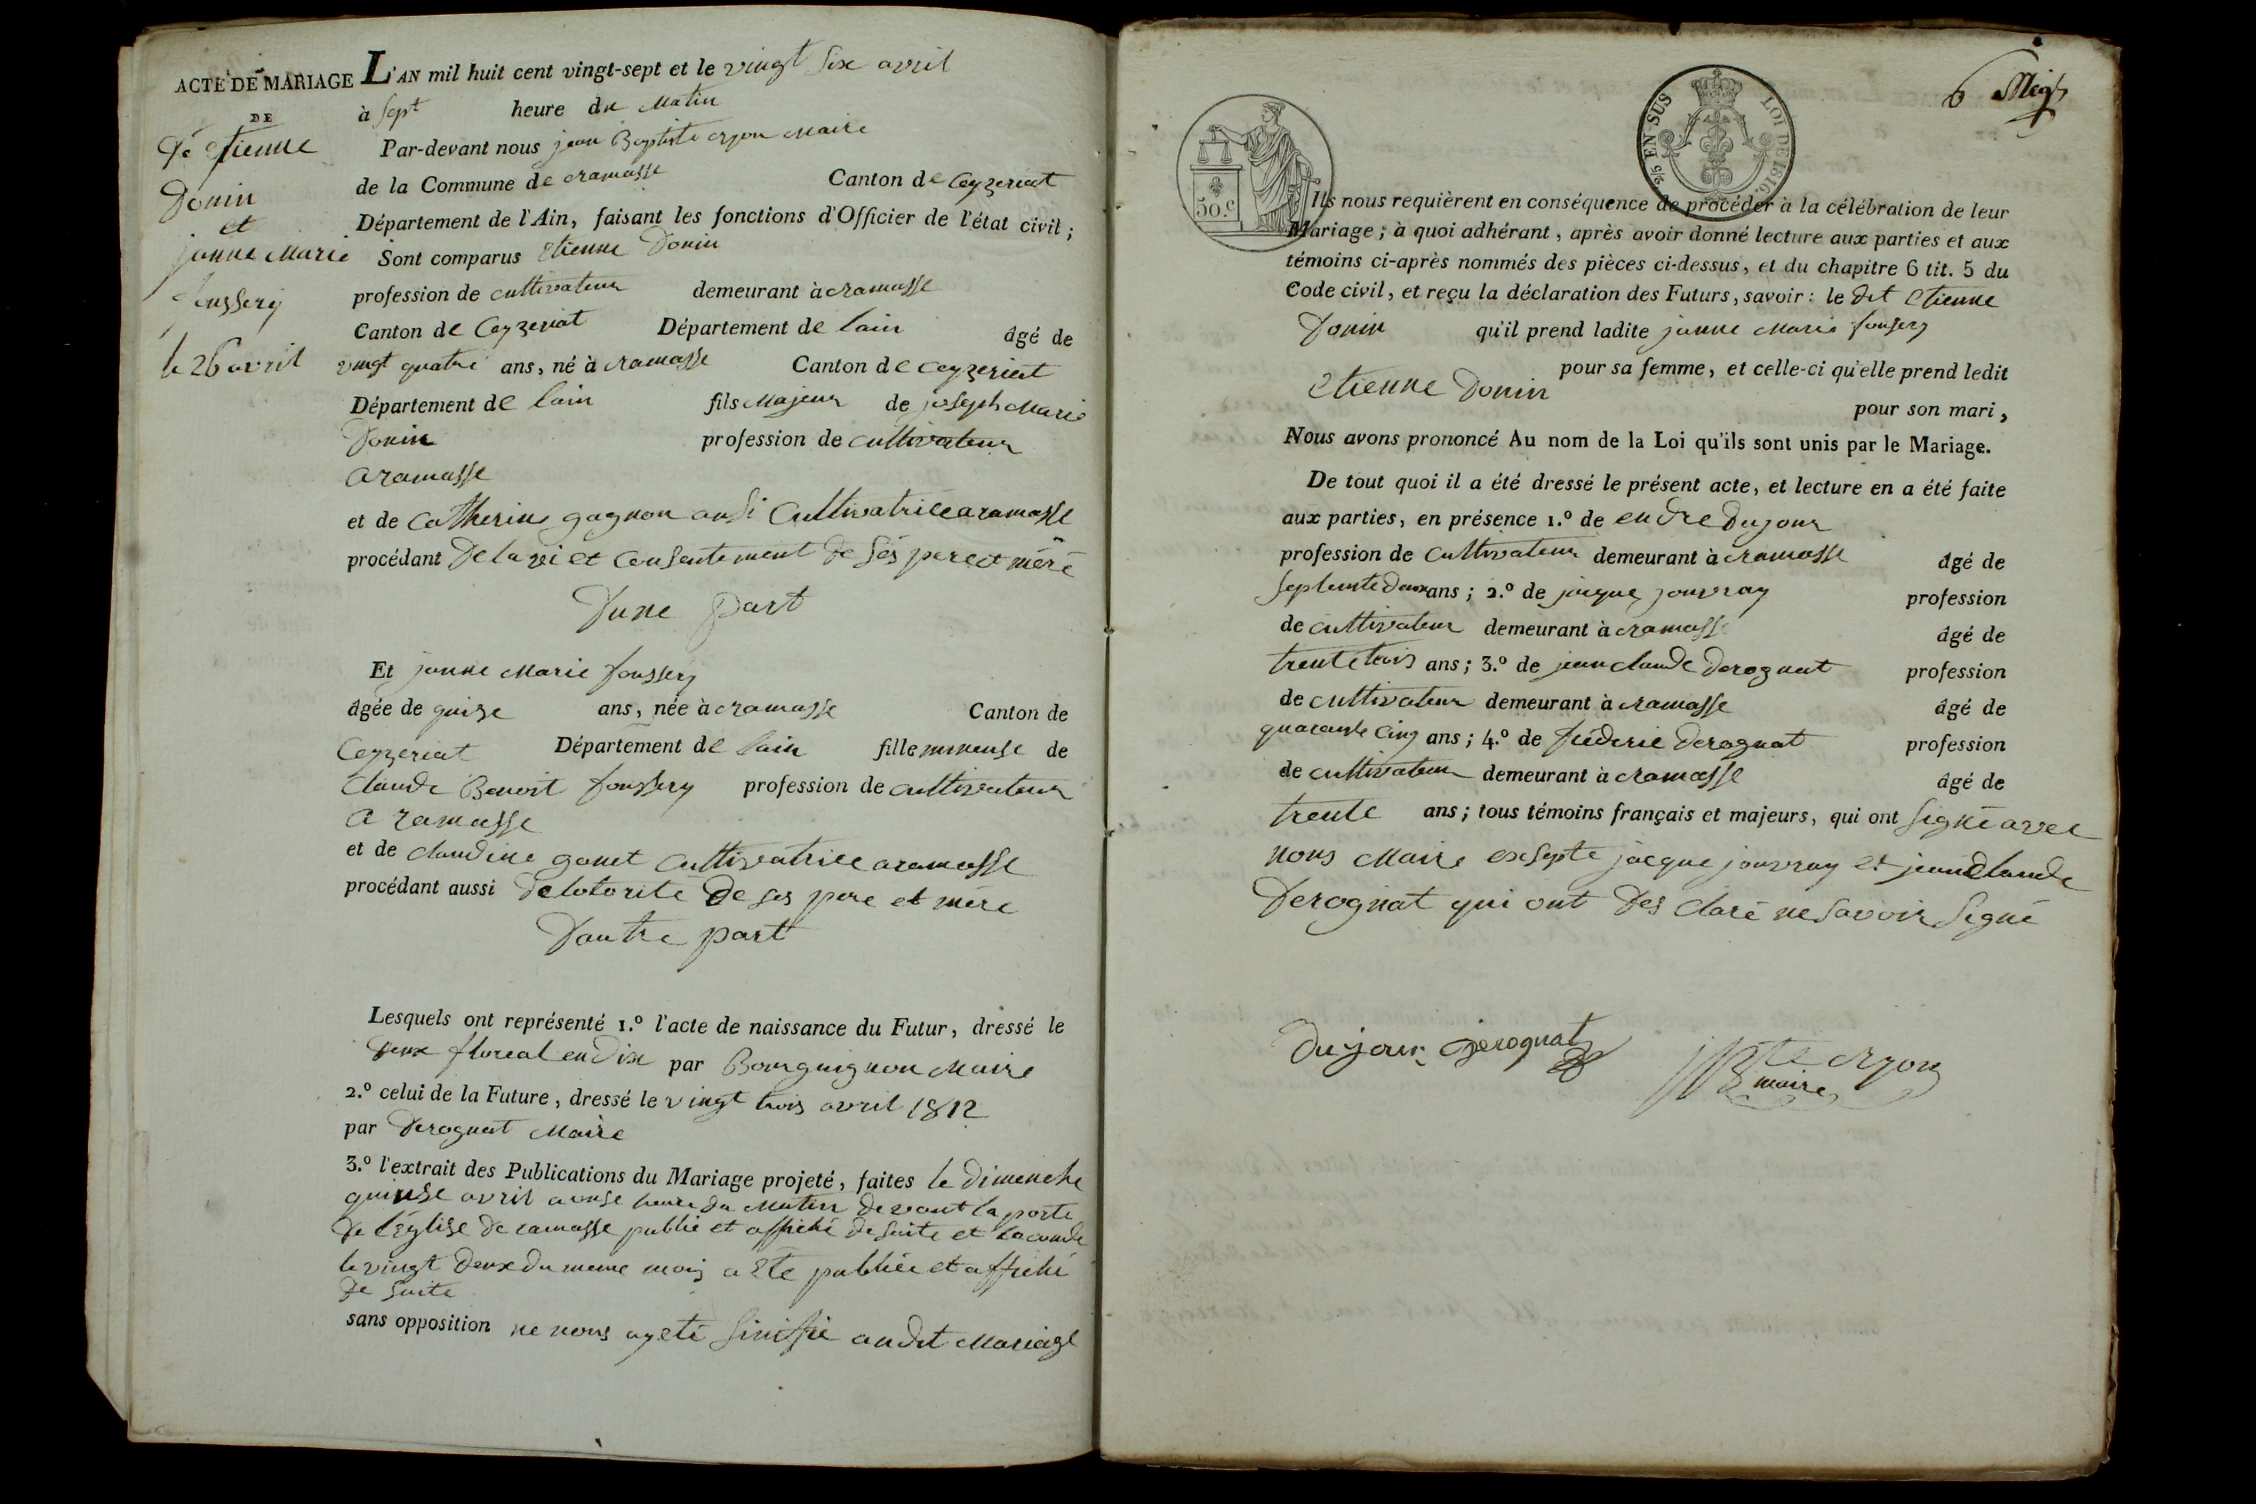 ACTE DE MARIAGE
DE
De etienne
Donin
et
janne Marie
foussery
le 26 avril
L'AN mil huit cent vingt-sept et le vingt six avril
à sept heure du Matin
Par-devant nous jean Baptiste Maire
de la Commune de ramasse Canton de Ceyzeriat
Département de l'Ain, faisant les fonctions d'Officier de l'état civil ;
Sont comparus etienne Donin
profession de cultivateur demeurant à ramasse
Canton de Ceyzeriat Département de lain âgé de
vingt quatre ans, né à ramasse Canton de ceyzeriat
Département de lain fils Majeur de joseph Marie
Donin profession de cultivateur
a ramasse
et de Catherine gagnon ausi Cultivatrice a ramasse
procédant De la vi et Consentement de sés pere et mére
Dune part
Et janne Marie foussery
âgée de quize ans, née à ramasse Canton de
Ceyzeriat Département de lain fille mineuse de
Claude Benoit foussery profession de cultivateur
a ramasse
et de claudine gonet cultivatrice a ramasse
procédant aussi de lotorité de ses pere et mére
Dautre part
Lesquels ont représenté 1.º l'acte de naissance du Futur, dressé le
Deux floreal en Dix par Bourguignon Maire
2.º celui de la Future, dressé le vingt trois avril 1812
par Derognat Maire
3.º l'extrait des Publications du Mariage projeté, faites le dimenche
quinse avril a onse heure du Matin devant la porte
de l'Église de ramasse publié et affiché de suite et la conde
le vingt deux du meme mois a Été publiée et affiché
de suite
sans opposition ne nous ayeté sinifié au dit Mariage
6
50.c
2/5 EN SUS
LOI DE 1816.
Ils nous requièrent en conséquence de procéder à la célébration de leur
Mariage ; à quoi adhérant, après avoir donné lecture aux parties et aux
témoins ci-après nommés des pièces ci-dessus, et du chapitre 6 tit. 5 du
Code civil, et reçu la déclaration des Futurs, savoir : le dit etienne
Donin qu'il prend ladite janne Marie fousery
pour sa femme, et celle-ci qu'elle prend ledit
etienne Donin
pour son mari,
Nous avons prononcé Au nom de la Loi qu'ils sont unis par le Mariage.
De tout quoi il a été dressé le présent acte, et lecture en a été faite
aux parties, en présence 1.º de endre Dujour
profession de cultivateur demeurant à ramasse âgé de
septente deux ans ; 2.º de jacque jouvray profession
de cultivateur demeurant à ramasse âgé de
trente trois ans ; 3.º de jean claude derognat profession
de cultivateur demeurant à ramasse âgé de
quarante cinq ans ; 4.º de fréderic derognat profession
de cultivateur demeurant à ramasse âgé de
trente ans ; tous témoins français et majeurs, qui ont signé avec
nous Maire exsepte jacque jouvray et jean claude
Derognat qui ont des claré ne savoir signé
Dujour Derognat
maire